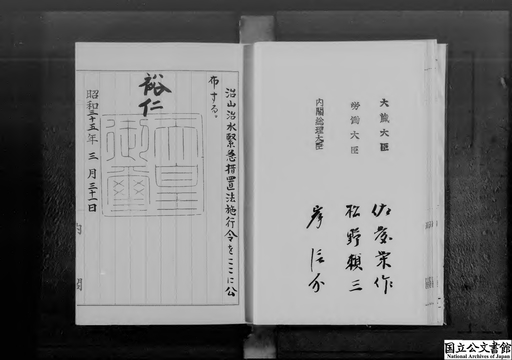 大蔵大臣 佐藤栄作
労働大臣 松野頼三
内閣総理大臣 岸信介
治山治水緊急措置法施行令をここに公
布する。
裕仁
天皇
御璽
昭和三十五年三月三十一日
内閣
国立公文書館
National Archives of Japan